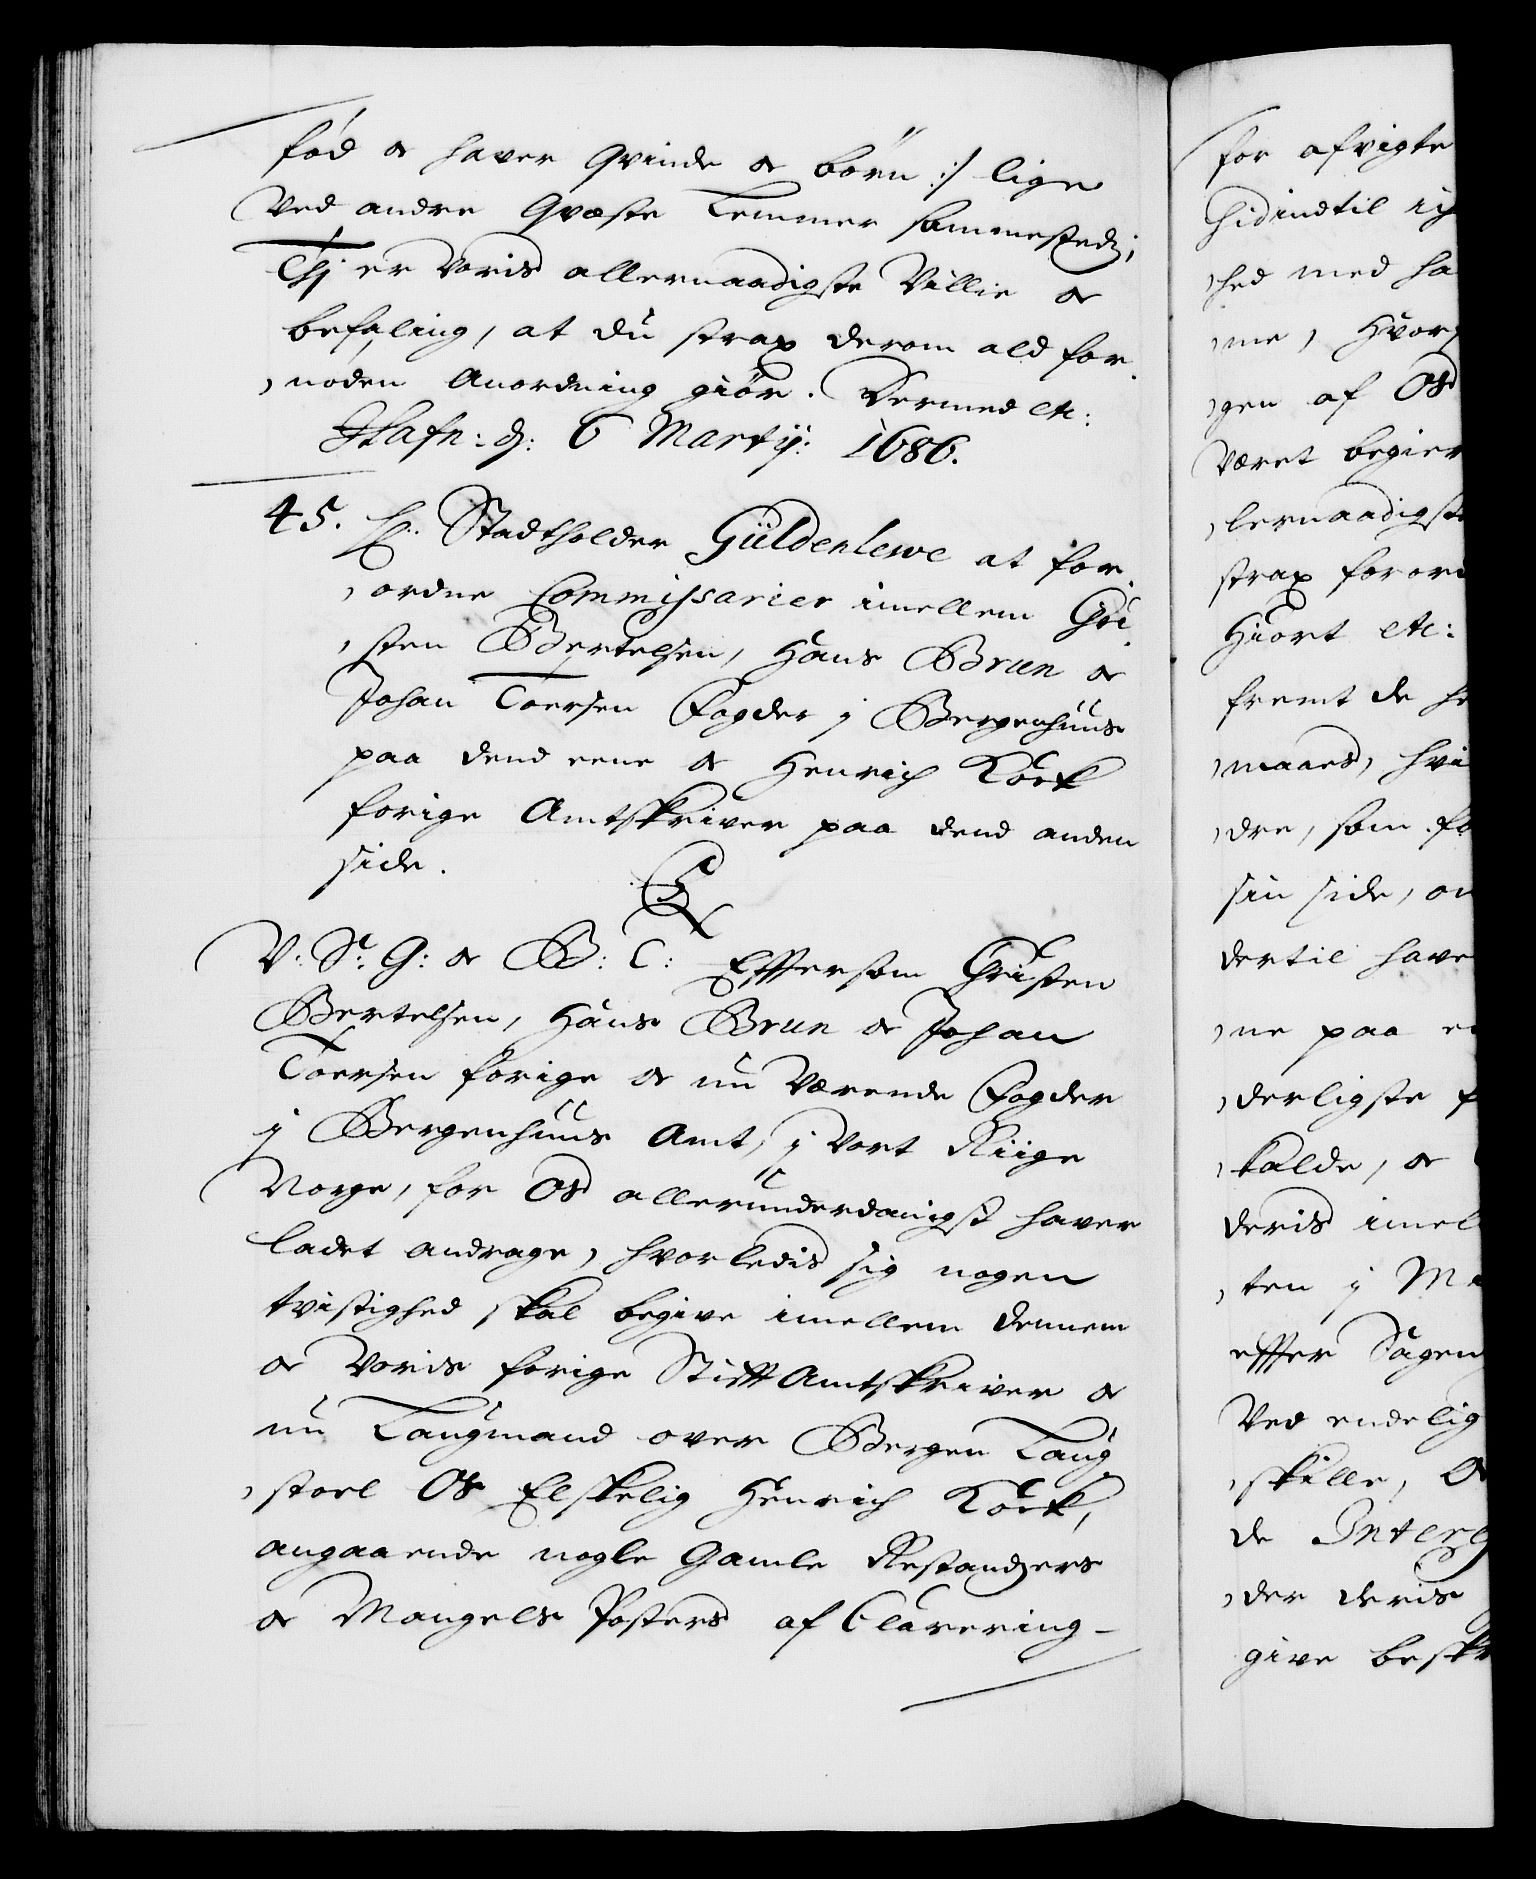 fød oc hafver Qvinde oc børn :/ lige
Ved andre Qvæste Lemmer sammestedz,
Thj er Voris allernaadigste Villie oc
befaling, at du strax derom ald for¸
¸nøden Anordning giør. Dermed etc:
Hafn: d: 6 Martÿ: 1686.
45. Hr. Stadtholder Güldenlewe at for¸
¸ordne Commissarier imellem Chri¸
¸sten Bertelsen, Hans Brun oc
Johan Toersen Fogder j Bergenhuus
paa dend eene oc Henrich Koek
forige Amtskriver paa dend anden
side.
V: St: G: oc B: C: Effersom Christen
Bertelsen, Hans Brun oc Johan
Toersen forige oc nu Værende Fogder
j Bergenhuus Amt, j Vort Riige
Norge, for Os allerunderdanigst hafver
ladet andrage, hvorledis sig nogen
tvistighed skal begive imellem dennem
oc Voris forige StifftAmtskriver oc
nu Laugmand over Bergen Laug¸
¸stoel Os Elskelig Henrich Koek,
angaaende nogle Gamle Restandzers
oc Mangels Posters af Clarering-
for afvigte
hidindtil
¸hed med
¸me, Hvor
¸gen af Os
Været begier
¸lernaadigst
strax foror
Hiort etc:
fremt de
¸maaed, hvi
¸dre, som
sin side, o
dertil have
¸ne paa
¸derligste
¸kalde, oc
deris imel
¸ten j
effter Sagen
Ved endelig
¸skille, Oc
de Interes
¸der deris
give beskr